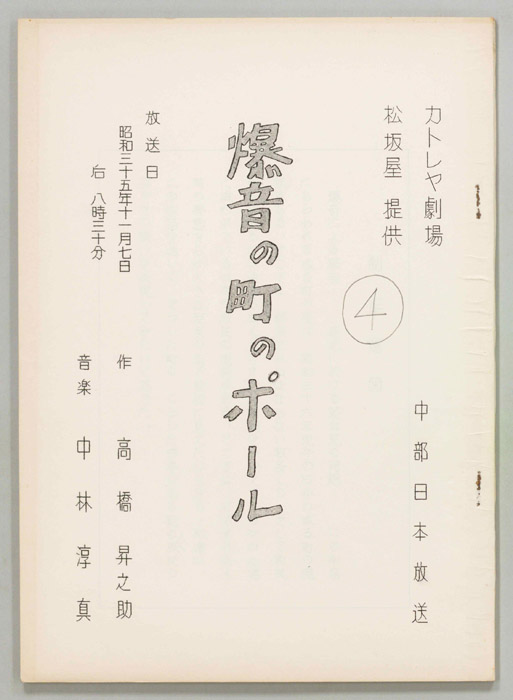 カトレヤ劇場
中部日本放送
松坂屋 提供
4
爆音の町のポール
放送日
昭和三十五年十一月七日
后 八時三十分
作 高橋昇之助
音楽 中林淳真